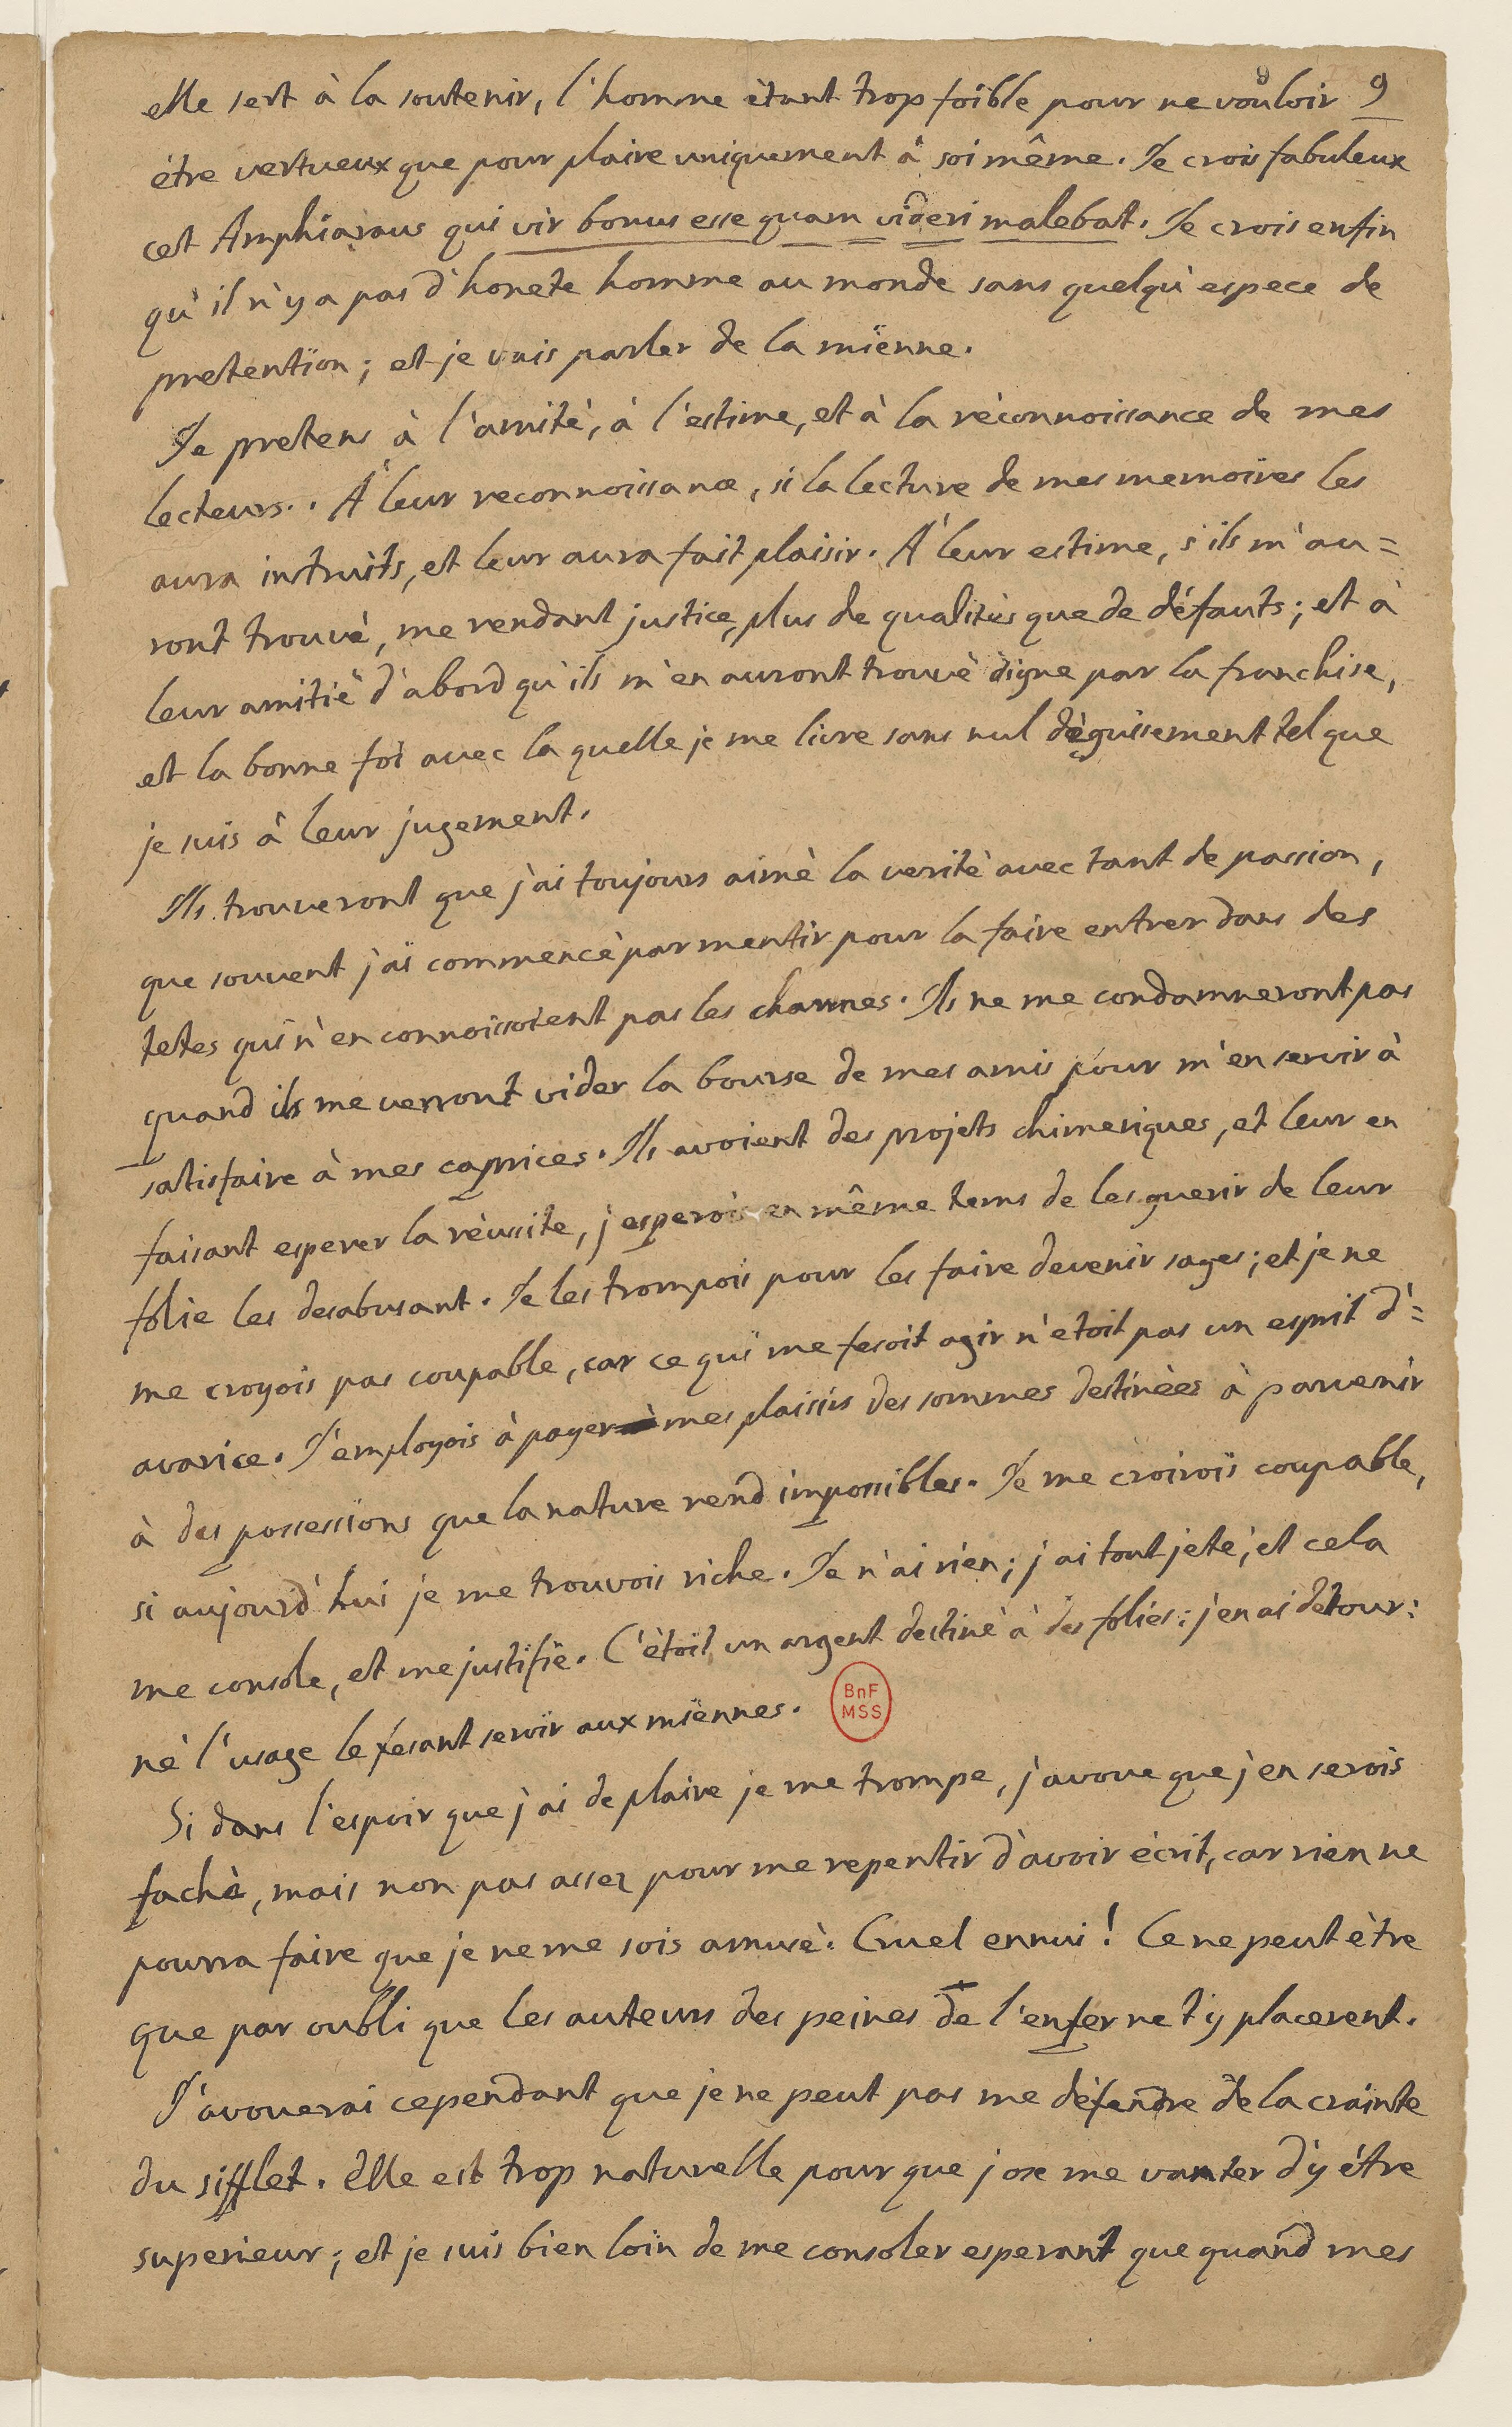 elle sert à la soutenir, l'homme ètant trop foible pour ne vouloir 9
être vertueux que pour plaire uniquement à soi même. Je crois fabuleux
cet Amphiaraus qui vir bonus esse quam videri malebat. Je crois enfin
qu'il n'y a pas d'honete homme au monde sans quelqu'espece de
pretention; et je vais parler de la mienne.
Je pretens à l'amitè, à l'estime, et à la rèconnoissance de mes
lecteurs.. À leur reconnoissance, si la lecture de mes memoires les
aura intruits, et leur aura fait plaisir. À leur estime, s'ils m'au=
ront trouvè, me rendant justice, plus de qualitès que de défauts; et à
leur amitiè d'abord qu'ils m'en auront trouvè digne par la franchise,
et la bonne foi avec la quelle je me livre sans nul dèguisement tel que
je suis à leur jugement.
Ils trouveront que j'ai toujours aimè la veritè avec tant de passion,
que souvent j'ai commencè par mentir pour la faire entrer dans des
tetes qui n'en connoissoient pas les charmes. Ils ne me condamneront pas
quand ils me verront vider la bourse de mes amis pour m'en servir à
satisfaire à mes caprices. Ils avoient des projets chimeriques, et leur en
faisant esperer la rèussite, j'esperois en même tems de les guerir de leur
folie les desabusant. Je les trompois pour les faire devenir sages; et je ne
me croyois pas coupable, car ce qui me fesoit agir n'etoit pas un esprit d'=
avarice. J'employois à payer mes plaisirs des sommes destinèes à parvenir
à des possessions que la nature rend impossibles. Je me croirois coupable,
si aujourd'hui je me trouvois riche. Je n'ai rien; j'ai tout jetè, et cela
me console, et me justifie. C'ètoit un argent destinè à des folies: j'en ai detour:
nè l'usage le fesant servir aux miennes.
BnF
MSS
Si dans l'espoir que j'ai de plaire je me trompe, j'avoue que j'en serois
fachè, mais non pas assez pour me repentir d'avoir ècrit, car rien ne
pourra faire que je ne me sois amusè. Cruel ennui! Ce ne peut ètre
que par oubli que les auteurs des peines de l'enfer ne t'y placerent.
J'avouerai cependant que je ne peut pas me dèfendre de la crainte
du sifflet. Elle est trop naturelle pour que j'ose me vanter d'y être
superieur; et je suis bien loin de me consoler esperant que quand mes